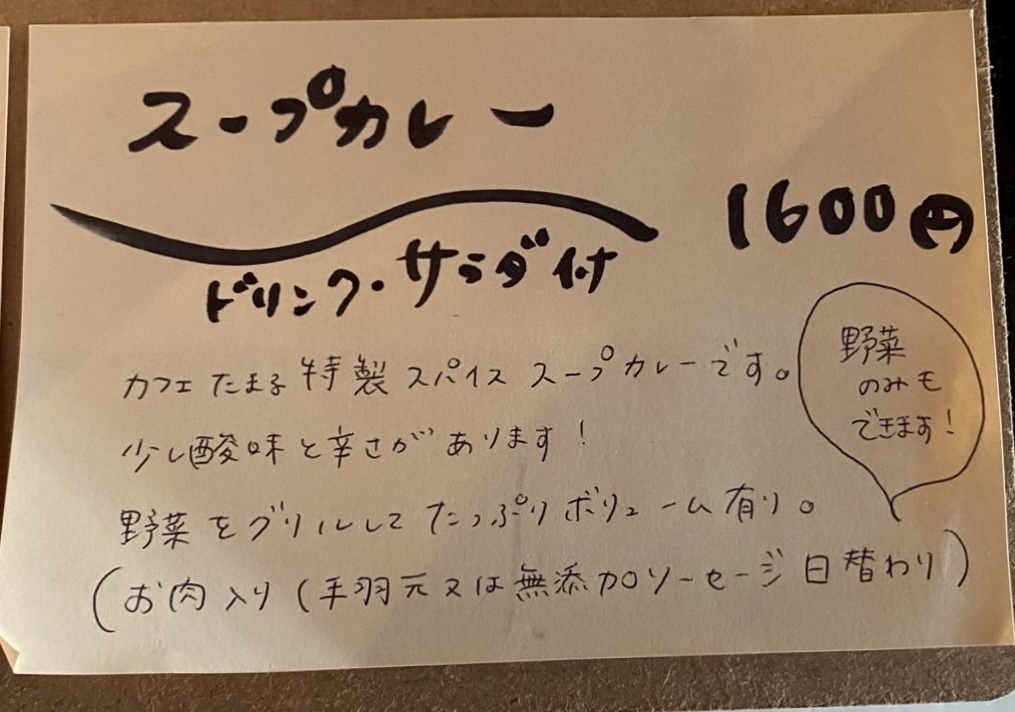 スープカレー
1600円
ドリンク・サラダ付
カフェたまる特製スパイススープカレーです。
少し酸味と辛さがあります!
野菜をグリルしてたっぷりボリューム有り。
(お肉入り(手羽元又は無添加ソーセージ日替わり)
野菜
のみも
できます!